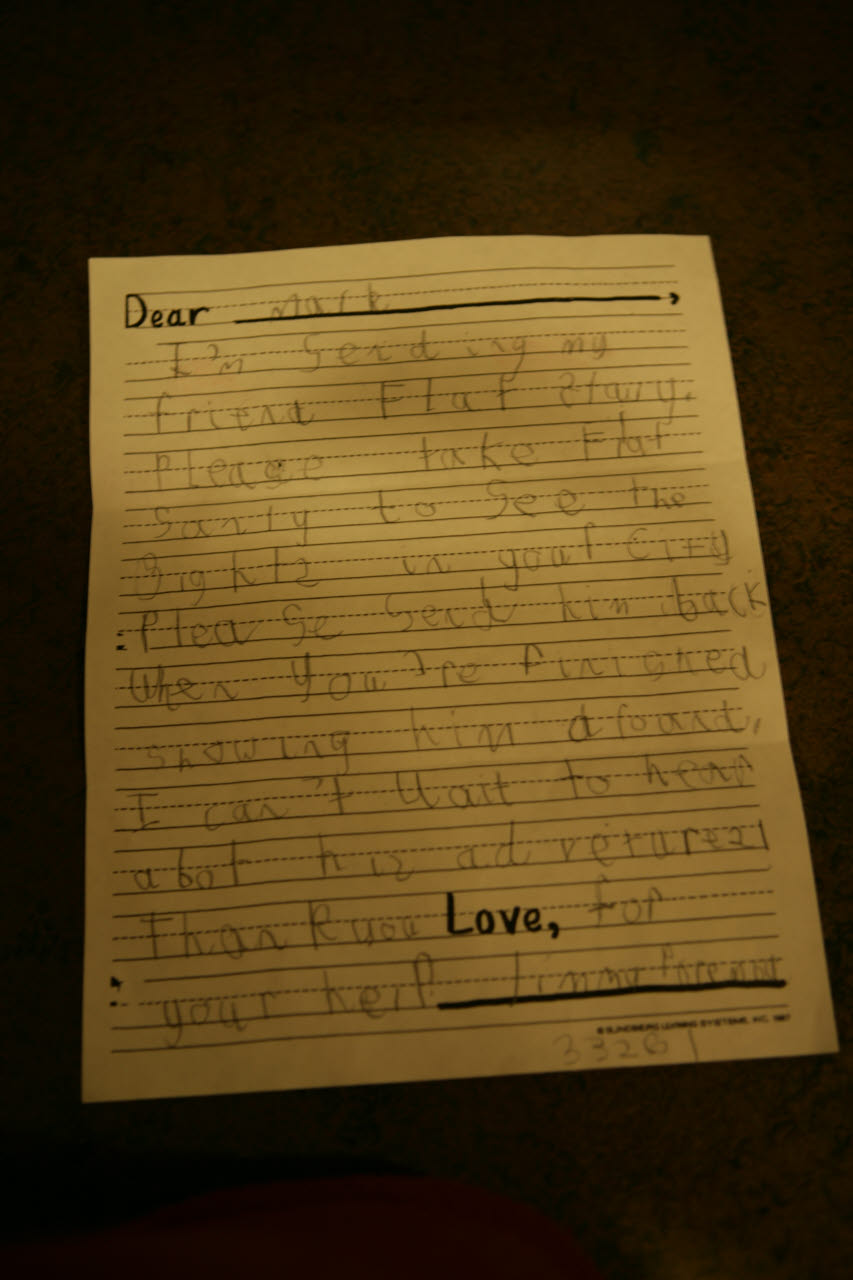 Dear Mark
I'm Sending my
friend Flat Stanly.
Please take Flat
Sanly to See the
Sights in your City
Please Send him back
When You're finished
showing him around.
I can't Wait to hear
abot his adventures!
Thank you Love, for
your help Timmy
© SUNDBERG LEARNING SYSTEMS, INC. 1987
33261